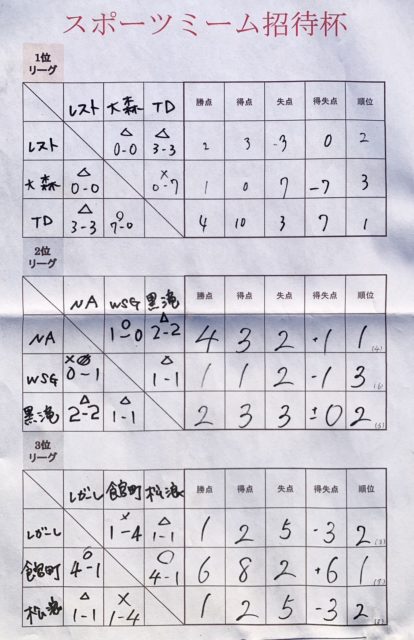 スポーツミーム招待杯
1位
リーグ
レスト 大森 TD 勝点 得点 失点 得失点 順位
レスト △ 0-0 △ 3-3 2 3 -3 0 2
大森 △ 0-0 × 0-7 1 0 7 -7 3
TD △ 3-3 ○ 7-0 4 10 3 7 1
2位
リーグ
NA WSG 黒滝 勝点 得点 失点 得失点 順位
NA ○ 1-0 △ 2-2 4 3 2 +1 1 (4)
WSG × 0-1 △ 1-1 1 1 2 -1 3 (6)
黒滝 △ 2-2 △ 1-1 2 3 3 ±0 2 (5)
3位
リーグ
レガーレ 館宮町 松浪 勝点 得点 失点 得失点 順位
レガーレ × 1-4 △ 1-1 1 2 5 -3 2
館宮町 ○ 4-1 ○ 4-1 6 8 2 +6 1
松浪 △ 1-1 × 1-4 1 2 5 -3 2